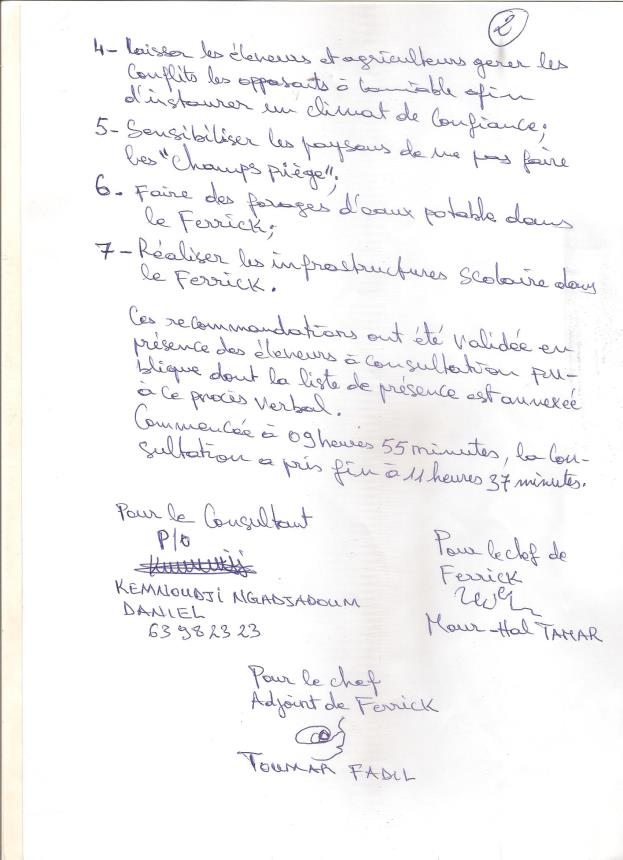 2
4- Laisser les éleveurs et agriculteurs gerer les
Conflits les opposants à l'amiable afin
d'instaurer un climat de Confiance;
5- Sensibiliser les paysans de ne pas faire
les "Champs piège";
6- Faire des forages d'eaux potable dans
le Ferrick;
7- Réaliser les infrastructures scolaire dans
le Ferrick.
Ces recommandations ont été validée en
présence des éleveurs à consultation pu-
blique dont la liste de présence est annexée
à ce procès verbal.
Commencée à 09 heures 55 minutes, la Con-
sultation a pris fin à 11 heures 37 minutes.
Pour le Consultant
P/O
KEMNOUDJI NGADJADOUM
DANIEL
63 98 23 23
Pour le chef de
Ferrick
Mour-Hal TAHAR
Pour le chef
Adjoint de Ferrick
TOUMAR FADIL